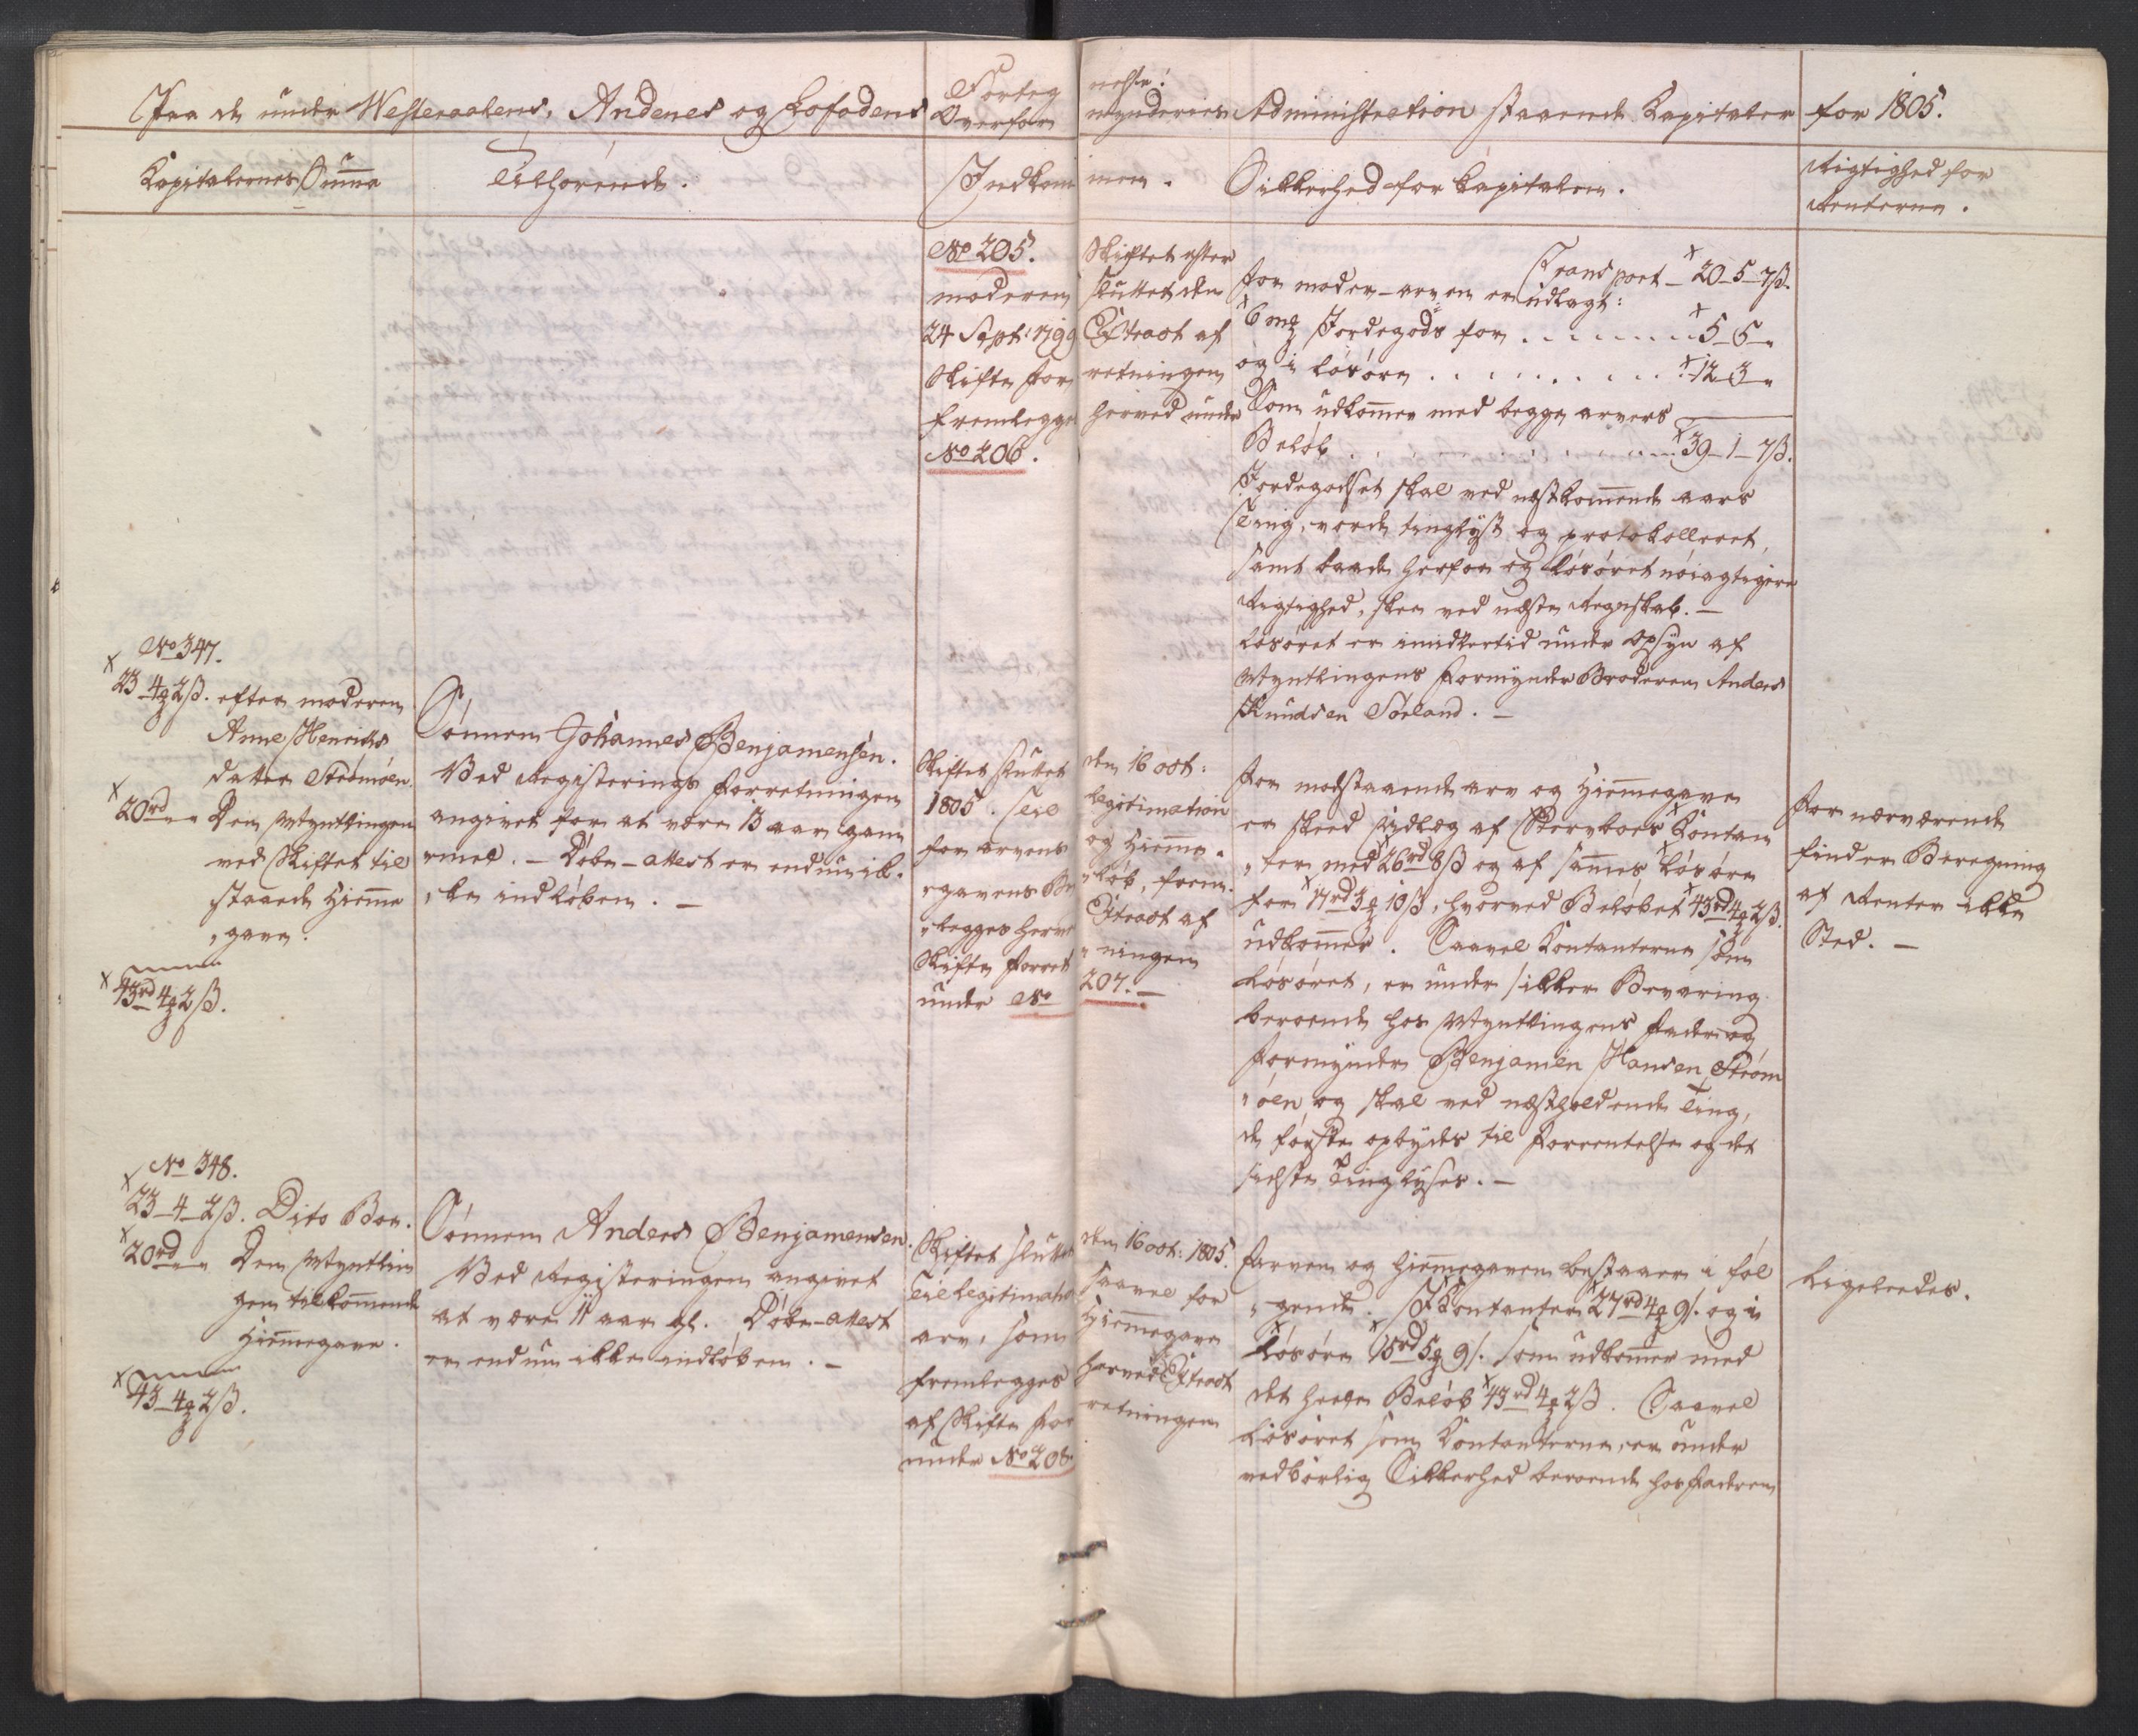 Paa de under Westeraalens, Andenes og Lofodens
Forteg
Overfor
nelse:
mynderies Administration staaende Kapitaler
for 1805.
Kapitalernes Summa
Tilhørende.
Indkom
men.
Sikkerhed for Kapitalen.
Rigtighed for
Renterne.
No 205.
moderen
24 Sept: 1799
Skifte for
fremlegges
No 206.
Skiftet efter
sluttet den
Extract af
retningen
herved under
Transport - 20-5-7ß.
for moder-arven er udlagt:
6 mk Jordegods for . . . . . . . . 5-5 "
og i Løsøre . . . . . . . . . 12-3 "
Som udkommer med begge arvers
Beløb . . . . . . . . . . . . 39-1-7ß.
Jordegodset skal ved nestkommende aars
Ting, vorde tinglyst og protokolleret,
samt baade herfor og Løsøret nöiagtigere
Rigtighed, skee ved neste Regnskab. -
Løsøret er imidlertid under Opsyn af
Myntlingens Formynder Broderen Anders
Knudsen Sørland. -
No 347.
23 4 2ß. efter moderen
Anne Henrichs
datter Strömöen.
20rd " " Den Myntlingen
ved Skiftet til
staaede Hiemme
" gave.
43rd 4 2ß.
Sönnen Johannes Benjamensen.
Ved Registerings Forretningen
angivet for at være 13 aar gam
mel. - Døbe-attest er endnu ik-
" ke indløben. -
Skiftet sluttet
1805. Til
for arvens
" gavens Be
" legges herve
Skifte Forret
under No
den 16 oct:
legitimation
og Hiemme-
" løb, frem-
Extract af
" ningen
207. -
for modstaaende arv og Hiemmegave
er skeed Udlæg af Sterboets Kontan
" ter med 26rd 8ß og af sammes Løsøre
for 17rd 3 10ß, hvorved Beløbet 43rd 4 2ß.
udkommer. Saavel Kontanterne som
Løsøret, er under sikker Bevaring
beroende hos Myntlingens Fader og
Formynder Benjamin Hansen Ström
" öen, og skal ved nestholdende Ting,
de første opbydes til Forrentelse og det
sidste Tinglyses. -
for nærværende
finder Beregning
af Renter ikke
Sted. -
No 348.
23-4-2ß. Dito Boe.
20rd " " Den Myntlin
gen tilkommende
Hiemmegave.
43-4 2ß.
Sönnen Anders Benjamensen.
Ved Registeringen angivet
at være 11 aar gl. Døbe-attest
er endnu ikke indløben. -
Skiftet slutted
Til legitimation
arv, som
fremlegges
af Skifte For
under No 208.
den 16 oct: 1805.
saavel for
Hiemmegave
herved Extract
retningen
Arven og hiemmegaven bestaaer i føl
" gende. I Kontanter 27rd 4 9ß. og i
Løsøre 15rd 5 9ß. som udkommer med
det heele Beløb 43rd 4 2ß. Saavel
Løsøret som Kontanterne, er under
vedbørlig Sikkerhed beroende hos Faderen
Ligeleedes.